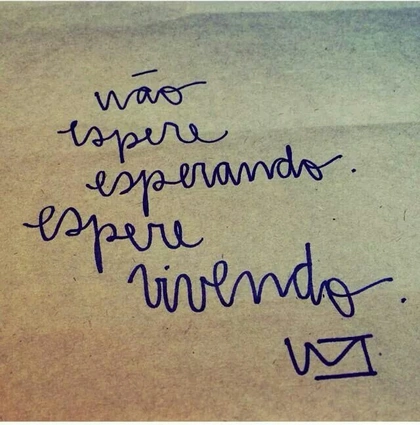 não
espere
esperando.
espere
vivendo.